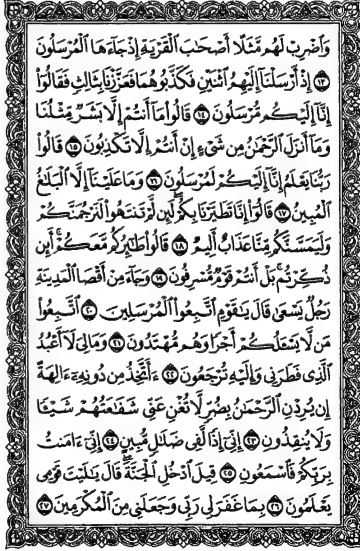 وَٱضۡرِبۡ لَهُم مَّثَلًا أَصۡحَٰبَ ٱلۡقَرۡيَةِ إِذۡ جَآءَهَا ٱلۡمُرۡسَلُونَ
١٣ إِذۡ أَرۡسَلۡنَآ إِلَيۡهِمُ ٱثۡنَيۡنِ فَكَذَّبُوهُمَا فَعَزَّزۡنَا بِثَالِثٖ فَقَالُوٓاْ
إِنَّآ إِلَيۡكُم مُّرۡسَلُونَ ١٤ قَالُواْ مَآ أَنتُمۡ إِلَّا بَشَرٞ مِّثۡلُنَا
وَمَآ أَنزَلَ ٱلرَّحۡمَٰنُ مِن شَيۡءٍ إِنۡ أَنتُمۡ إِلَّا تَكۡذِبُونَ ١٥ قَالُواْ
رَبُّنَا يَعۡلَمُ إِنَّآ إِلَيۡكُمۡ لَمُرۡسَلُونَ ١٦ وَمَا عَلَيۡنَآ إِلَّا ٱلۡبَلَٰغُ
ٱلۡمُبِينُ ١٧ قَالُوٓاْ إِنَّا تَطَيَّرۡنَا بِكُمۡۖ لَئِن لَّمۡ تَنتَهُواْ لَنَرۡجُمَنَّكُمۡ
وَلَيَمَسَّنَّكُم مِّنَّا عَذَابٌ أَلِيمٞ ١٨ قَالُواْ طَٰٓئِرُكُم مَّعَكُمۡ أَئِن
ذُكِّرۡتُمۚ بَلۡ أَنتُمۡ قَوۡمٞ مُّسۡرِفُونَ ١٩ وَجَآءَ مِنۡ أَقۡصَا ٱلۡمَدِينَةِ
رَجُلٞ يَسۡعَىٰ قَالَ يَٰقَوۡمِ ٱتَّبِعُواْ ٱلۡمُرۡسَلِينَ ٢٠ ٱتَّبِعُواْ
مَن لَّا يَسۡـَٔلُكُمۡ أَجۡرٗا وَهُم مُّهۡتَدُونَ ٢١ وَمَالِيَ لَآ أَعۡبُدُ
ٱلَّذِي فَطَرَنِي وَإِلَيۡهِ تُرۡجَعُونَ ٢٢ ءَأَتَّخِذُ مِن دُونِهِۦٓ ءَالِهَةً
إِن يُرِدۡنِ ٱلرَّحۡمَٰنُ بِضُرّٖ لَّا تُغۡنِ عَنِّي شَفَٰعَتُهُمۡ شَيۡـٔٗا
وَلَا يُنقِذُونِ ٢٣ إِنِّيٓ إِذٗا لَّفِي ضَلَٰلٖ مُّبِينٍ ٢٤ إِنِّيٓ ءَامَنتُ
بِرَبِّكُمۡ فَٱسۡمَعُونِ ٢٥ قِيلَ ٱدۡخُلِ ٱلۡجَنَّةَۖ قَالَ يَٰلَيۡتَ قَوۡمِي
يَعۡلَمُونَ ٢٦ بِمَا غَفَرَ لِي رَبِّي وَجَعَلَنِي مِنَ ٱلۡمُكۡرَمِينَ ٢٧